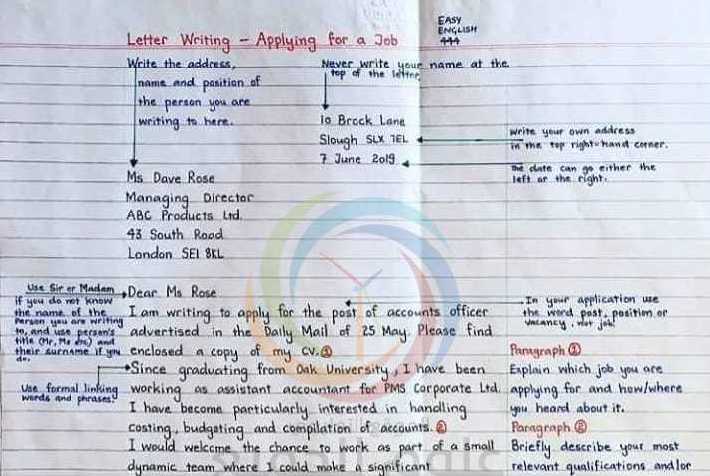 Letter Writing - Applying for a Job
EASY
ENGLISH
444
Write the address,
name and position of
the person you are
writing to here.
Never write your name at the
top of the letter
10 Brock Lane
Slough SLX 7EL
7 June 2019
write your own address
in the top right-hand corner.
the date can go either the
left or the right.
Ms Dave Rose
Managing Director
ABC Products Ltd.
43 South Road
London SE1 8KL
Use Sir or Madam
if you do not know
the name of the
person you are writing
to, and use person's
title (Mr, Ms etc) and
their surname if you
do.
Use formal linking
words and phrases.
Dear Ms Rose
I am writing to apply for the post of accounts officer
advertised in the Daily Mail of 25 May. Please find
enclosed a copy of my CV. ①
Since graduating from Oak University, I have been
working as assistant accountant for PMS Corporate Ltd.
I have become particularly interested in handling
costing, budgeting and compilation of accounts. ②
I would welcome the chance to work as part of a small
dynamic team where I could make a significant
In your application use
the word post, position or
vacancy, not job!
Paragraph ①
Explain which job you are
applying for and how/where
you heard about it.
Paragraph ②
Briefly describe your most
relevant qualifications and/or